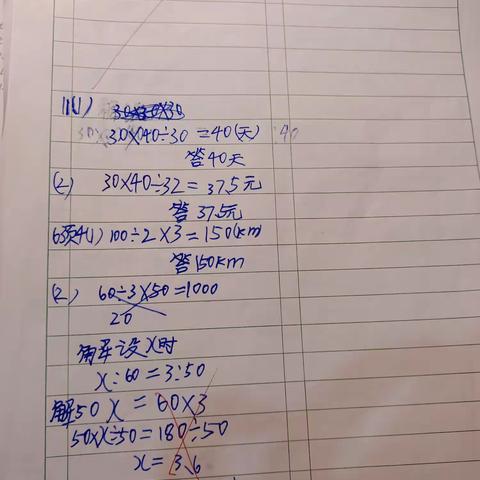 11(1) 30×40÷30 =40(天)
答40天
(2) 30×40÷32=37.5元
答 37.5元
63页4(1) 100÷2×3=150(km)
答150km
(2) 60÷3×50=1000
20
解设X时
X:60=3:50
解50X=60×3
50X÷50=180÷50
X=3.6